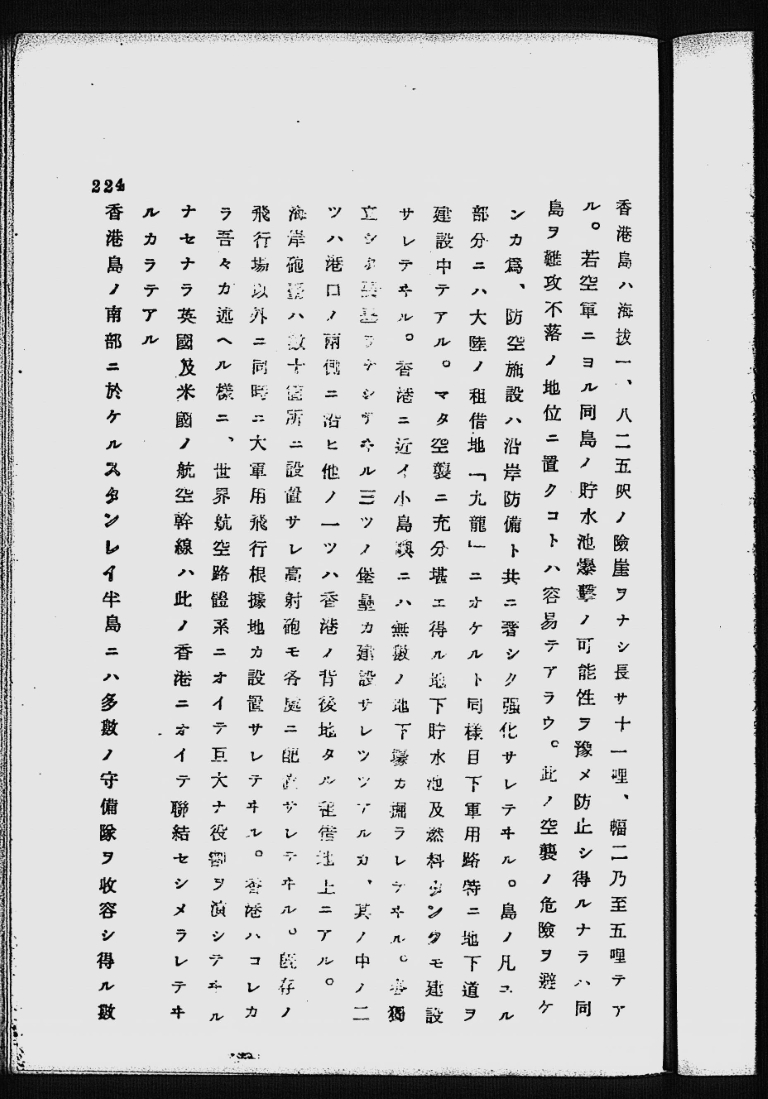 香港島ハ海拔一、八二五呎ノ險崖ヲナシ長サ十一哩、幅二乃至五哩テア
ル。若空軍ニヨル同島ノ貯水池爆擊ノ可能性ヲ豫メ防止シ得ルナラハ同
島ヲ難攻不落ノ地位ニ置クコトハ容易テアラウ。此ノ空襲ノ危險ヲ避ケ
ンカ爲、防空施設ハ沿岸防備ト共ニ著シク强化サレテヰル。島ノ凡ユル
部分ニハ大陸ノ租借地「九龍」ニオケルト同樣目下軍用路特ニ地下道ヲ
建設中テアル。マタ空襲ニ充分堪エ得ル地下貯水池及燃料タンクモ建設
サレテヰル。香港ニ近イ小島嶼ニハ無數ノ地下壕カ掘ラレテヰル。
立シタ ヲナシテヰル三ツノ堡壘カ建設サレツツアルカ、其ノ中ノ二
ツハ港口ノ兩側ニ沿ヒ他ノ一ツハ香港ノ背後地タル租借地上ニアル。
海岸砲臺ハ數十箇所ニ設置サレ高射砲モ各處ニ配置サレテヰル。既存ノ
飛行場以外ニ同時ニ大軍用飛行根據地カ設置サレテヰル。香港ハコレカ
ラ吾々カ述ヘル樣ニ、世界航空路體系ニオイテ亘大ナ役割ヲ演シテヰル
ナセナラ英國及米國ノ航空幹線ハ此ノ香港ニオイテ聯結セシメラレテヰ
ルカラテアル
香港島ノ南部ニ於ケルスタンレイ半島ニハ多數ノ守備隊ヲ收容シ得ル數
224